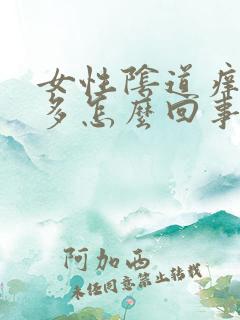 女性陰道痒
多怎麼回事
阿加西
未任同意禁止转载